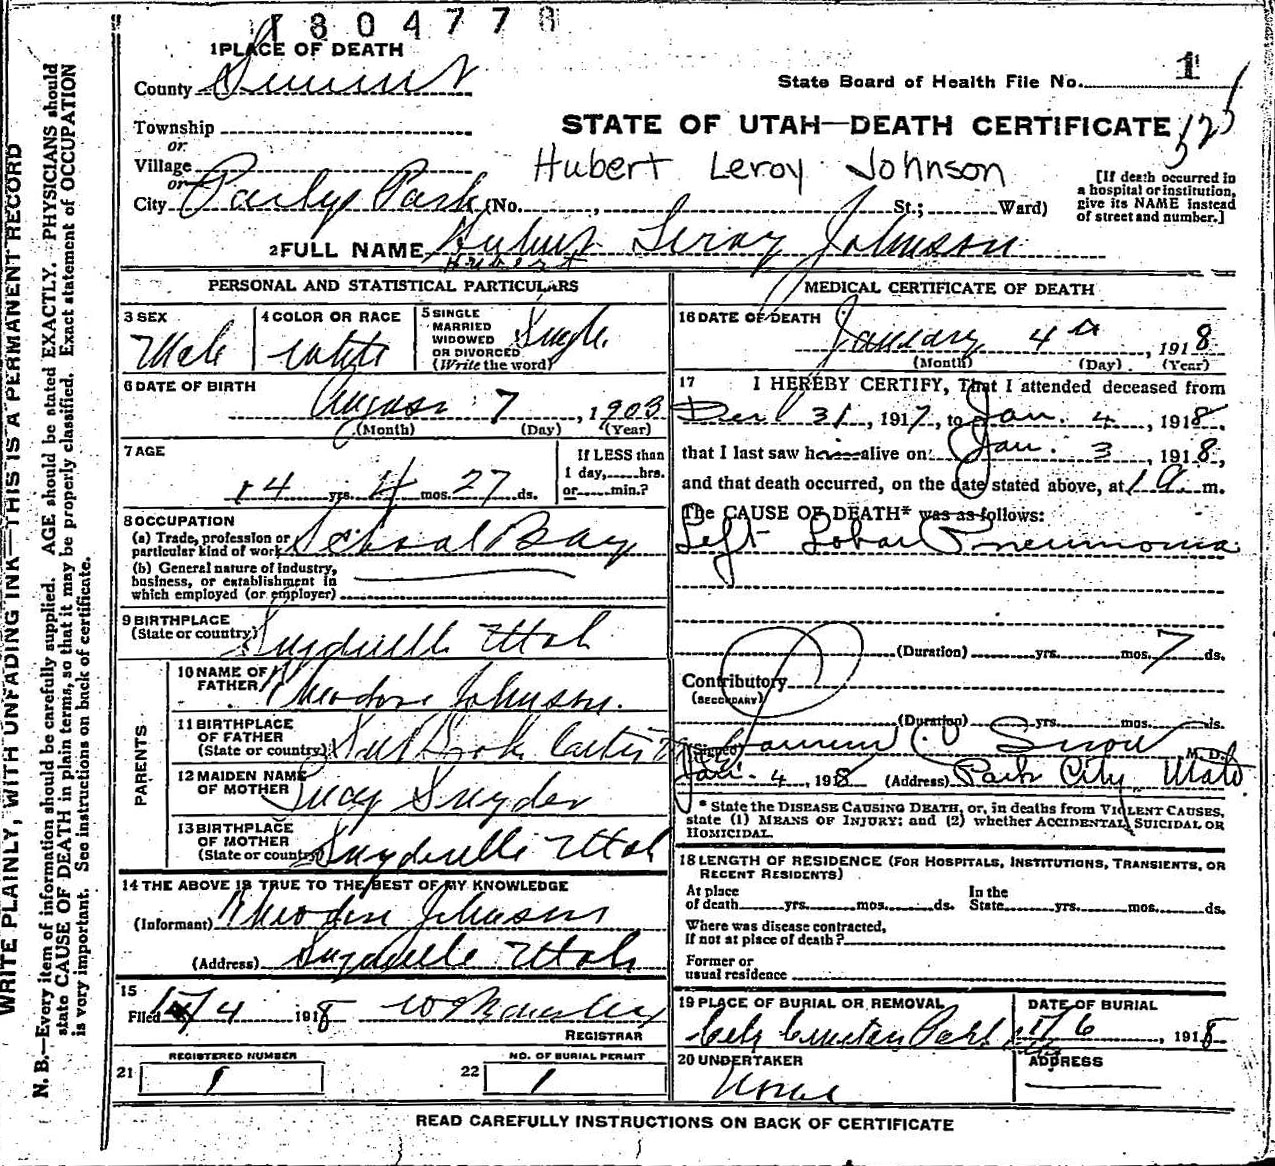 1804778
1 PLACE OF DEATH
County Summit
State Board of Health File No. 1
Township
or
Village
or
City Parleys Park (No. , St.; Ward)
STATE OF UTAH—DEATH CERTIFICATE
Hubert Leroy Johnson
[If death occurred in
a hospital or institution,
give its NAME instead
of street and number.]
2 FULL NAME Hubert Leroy Johnson
Hubert
PERSONAL AND STATISTICAL PARTICULARS
3 SEX Male
4 COLOR OR RACE White
5 SINGLE
MARRIED
WIDOWED
OR DIVORCED
(Write the word) Single
6 DATE OF BIRTH
August 7, 1903
(Month) (Day) (Year)
7 AGE
14 yrs. 4 mos. 27 ds.
If LESS than
1 day, hrs.
or min.?
8 OCCUPATION
(a) Trade, profession or
particular kind of work School Boy
(b) General nature of industry,
business, or establishment in
which employed (or employer)
9 BIRTHPLACE
(State or country) Snyderville Utah
PARENTS
10 NAME OF
FATHER Theodore Johnson.
11 BIRTHPLACE
OF FATHER
(State or country) Salt Lake
12 MAIDEN NAME
OF MOTHER Lucy Snyder
13 BIRTHPLACE
OF MOTHER
(State or country) Snyderville Utah
14 THE ABOVE IS TRUE TO THE BEST OF MY KNOWLEDGE
(Informant) Theodore Johnson
(Address) Snyderville Utah
15
Filed 1/4 1918
REGISTRAR
REGISTERED NUMBER
21 1
NO. OF BURIAL PERMIT
22 1
MEDICAL CERTIFICATE OF DEATH
16 DATE OF DEATH
January 4th, 1918
(Month) (Day) (Year)
17 I HEREBY CERTIFY, That I attended deceased from
Dec 31, 1917, to Jan. 4, 1918.
that I last saw him alive on Jan. 3, 1918,
and that death occurred, on the date stated above, at 1 a. m.
The CAUSE OF DEATH* was as follows:
Left Lobar Pneumonia
(Duration) yrs. mos. 7 ds.
Contributory
(SECONDARY)
(Duration) yrs. mos. ds.
(Signed) Snow M. D.
Jan. 4, 1918 (Address) Park City Utah
* State the DISEASE CAUSING DEATH, or, in deaths from VIOLENT CAUSES,
state (1) MEANS OF INJURY; and (2) whether ACCIDENTAL, SUICIDAL OR
HOMICIDAL.
18 LENGTH OF RESIDENCE (FOR HOSPITALS, INSTITUTIONS, TRANSIENTS, OR
RECENT RESIDENTS)
At place
of death yrs. mos. ds.
In the
State yrs. mos. ds.
Where was disease contracted,
if not at place of death?
Former or
usual residence
19 PLACE OF BURIAL OR REMOVAL
City Cemetery Park
DATE OF BURIAL
1/6, 1918
20 UNDERTAKER
None
ADDRESS
READ CAREFULLY INSTRUCTIONS ON BACK OF CERTIFICATE
WRITE PLAINLY, WITH UNFADING INK—THIS IS A PERMANENT RECORD
N. B.—Every item of information should be carefully supplied. AGE should be stated EXACTLY. PHYSICIANS should
state CAUSE OF DEATH in plain terms, so that it may be properly classified. Exact statement of OCCUPATION
is very important. See instructions on back of certificate.